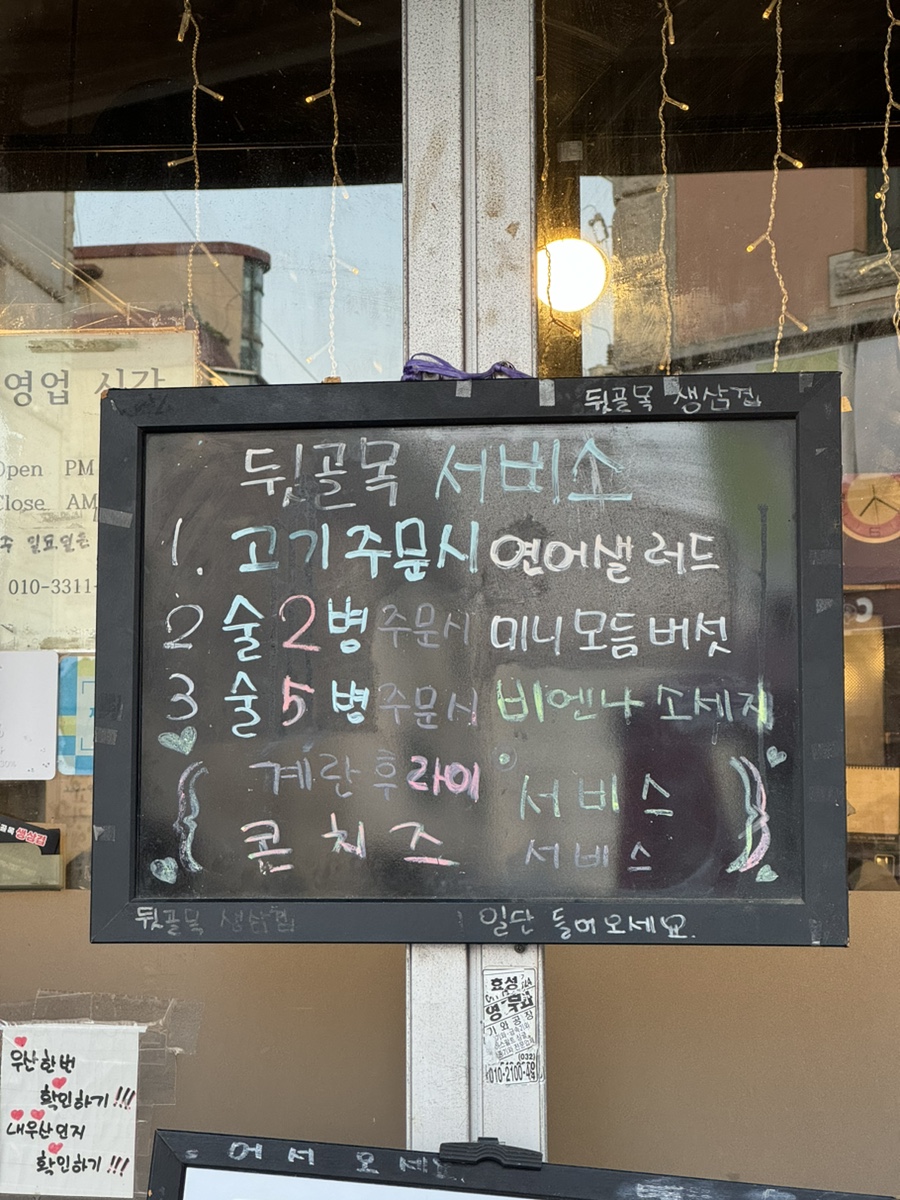 영업 시간
Open PM
Close AM
일요일은
010-3311-
뒷골목 생삼겹
뒷골목 서비스
1. 고기 주문시 연어샐러드
2 술 2병 주문시 미니 모듬 버섯
3 술 5병 주문시 비엔나 소세지
계란후라이 서비스
콘치즈 서비스
뒷골목 생삼겹 일단 들어오세요.
생삼겹
효성
기와공장
(032)
우산 한번
확인하기!!!
내우산인지
확인하기!!!
어서오세요